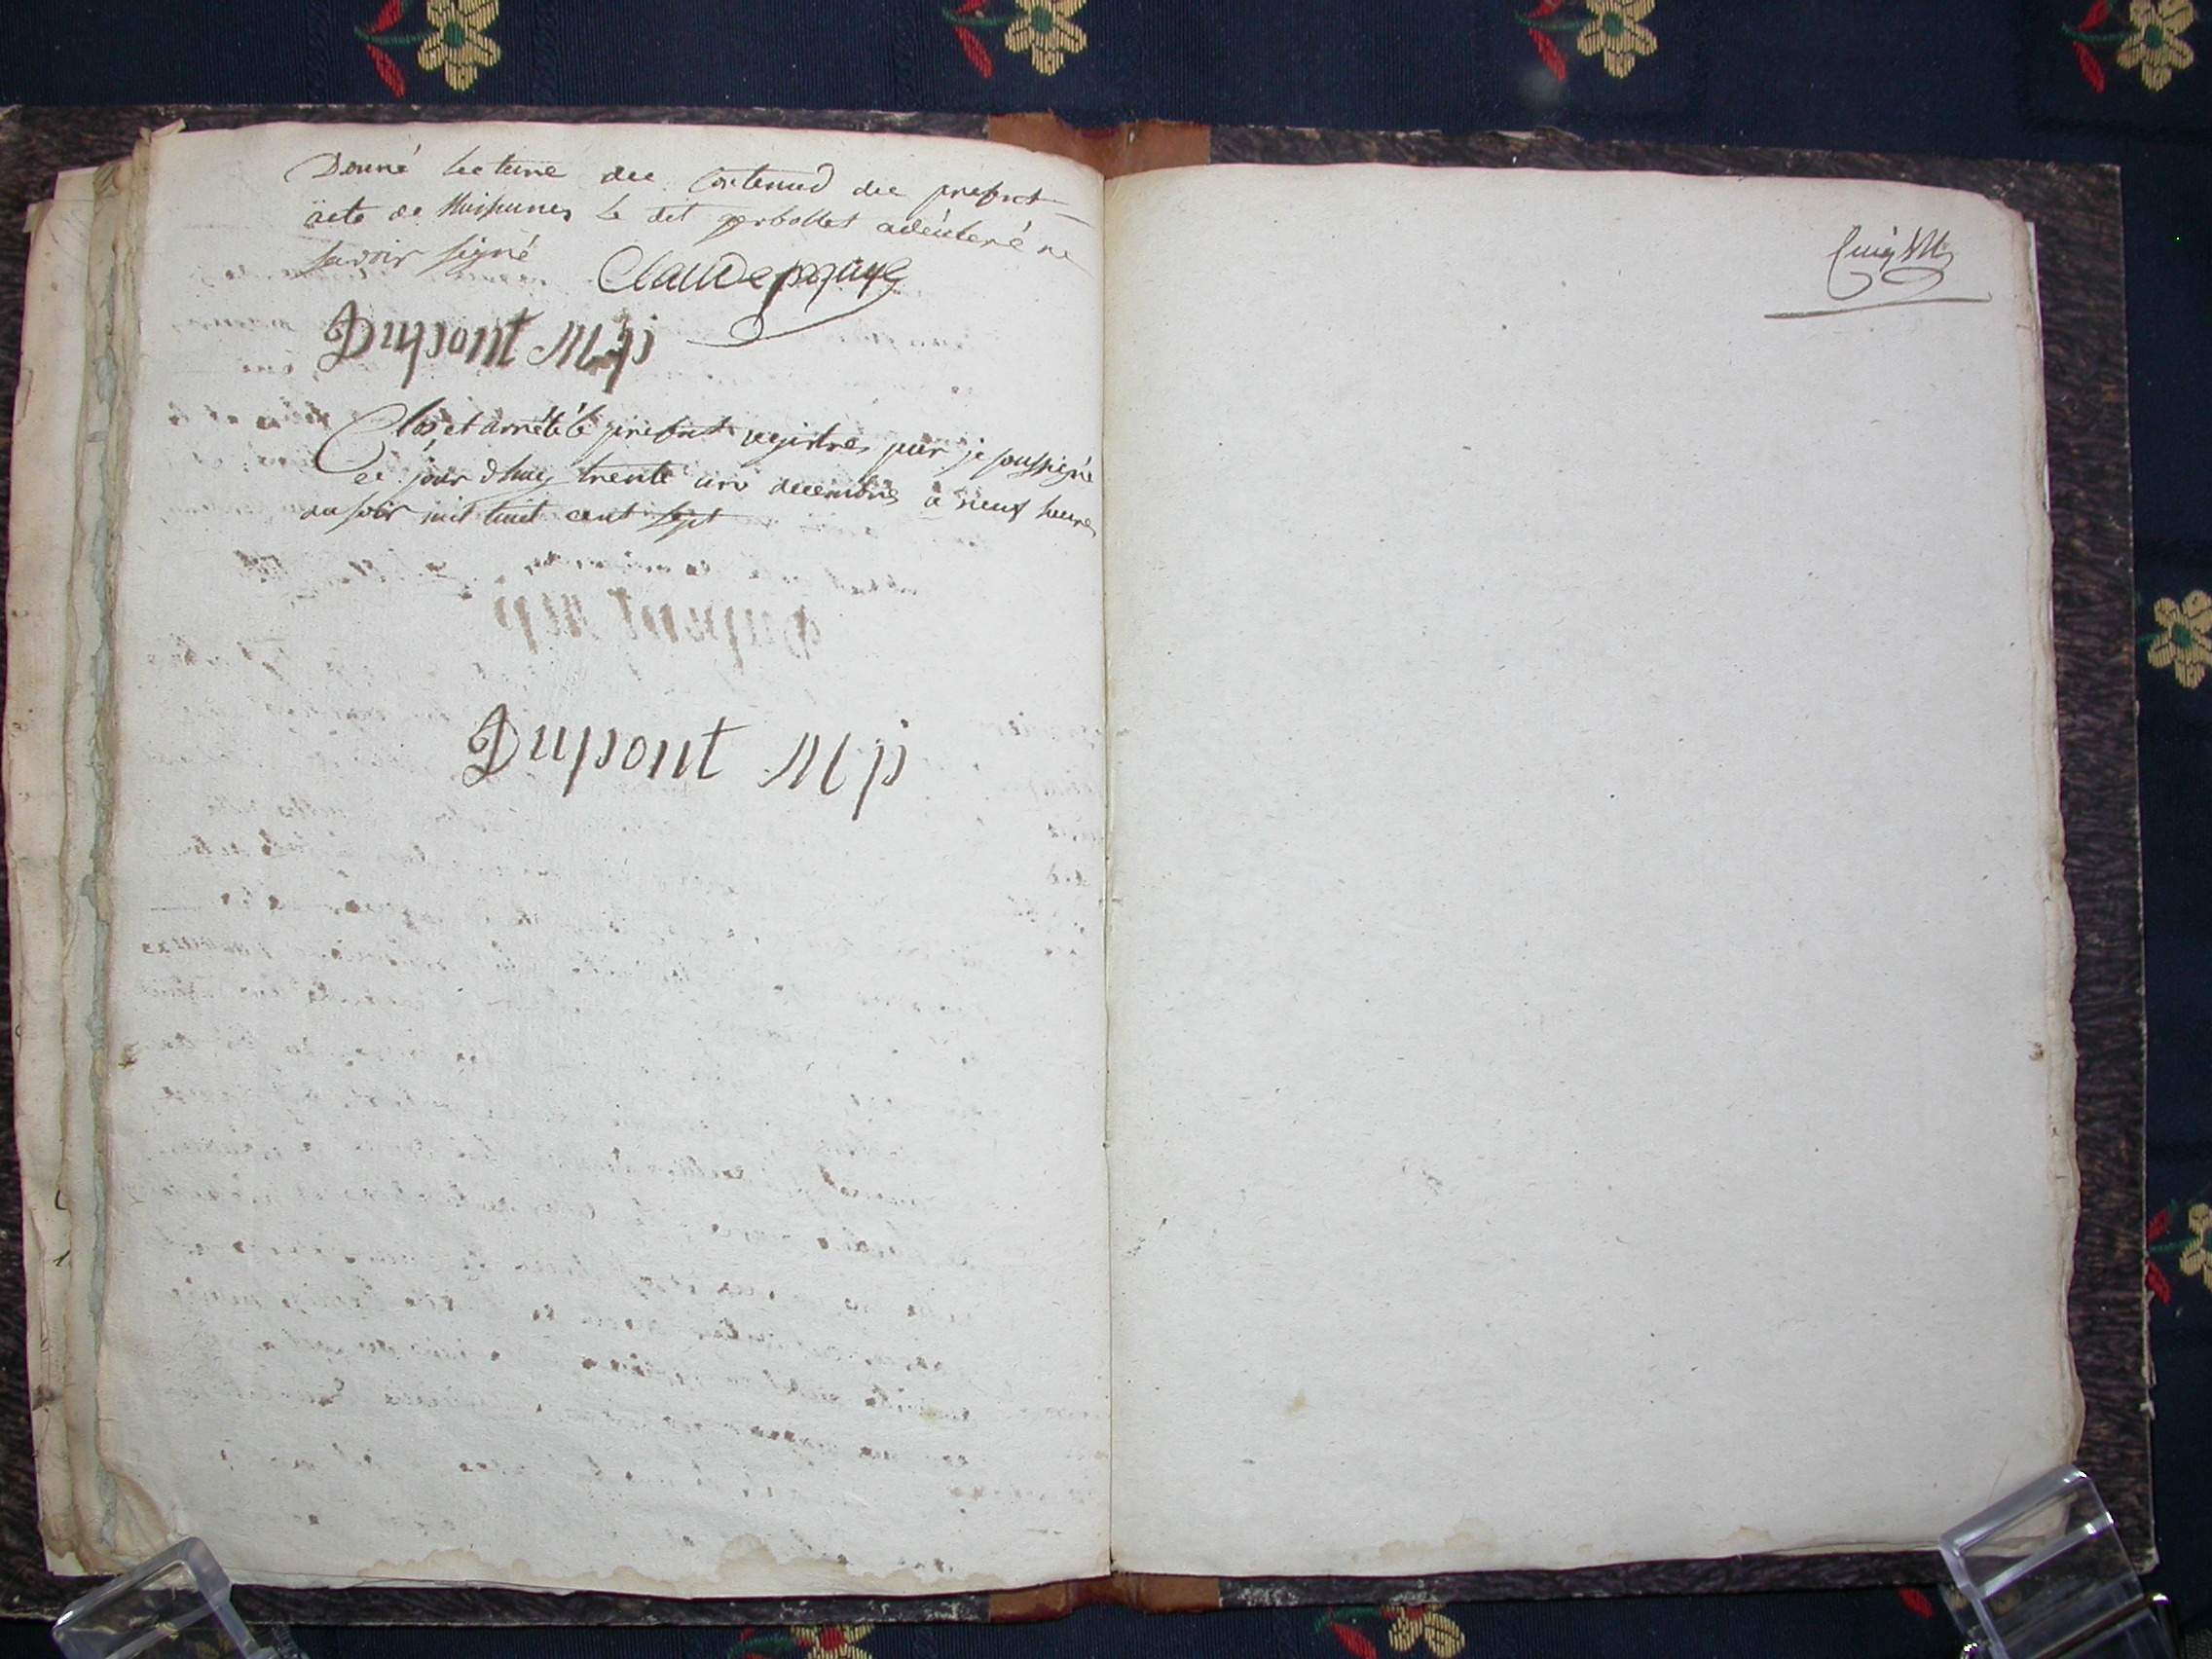 Donné lecture du contenud du present
acte de Naissances le dit gerbollet adéclaré ne
savoir signé
Claude
Dupont Mp
Clos et arrêté le present registres par je soussigné
ce jour dhuy trente un decembres à neuf heures
du soir mil huit cent sept
Dupont Mp